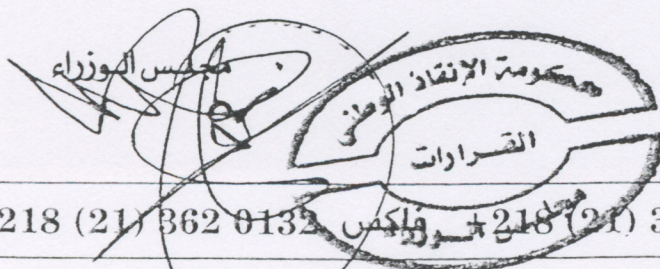 مجلس الوزراء
حكومة الإنقاذ الوطني
القرارات
مجلس الوزراء
218 (21) 362 0132 فاكس +218 (21) 3